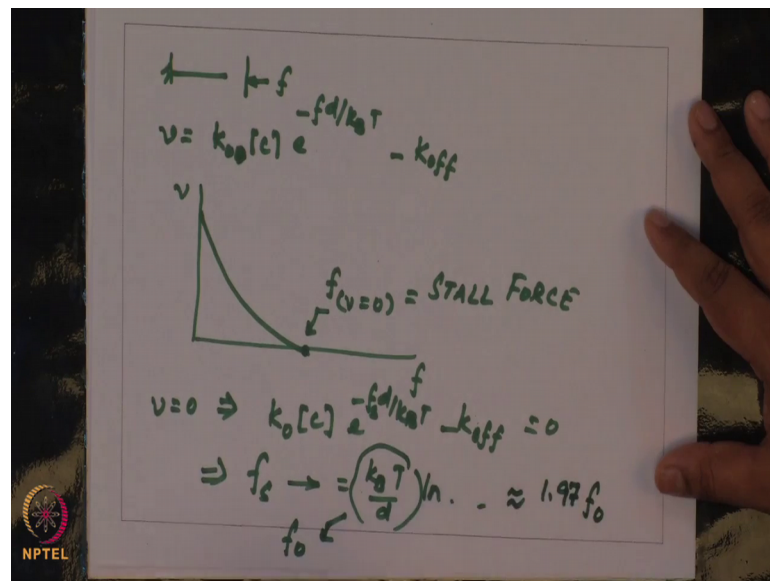 ← f
v = k₀[c] e^(-fd/k_BT) - k_off
v
f(v=0) = STALL FORCE
f
v=0 ⇒ k₀[c] e^(-f_s d/k_BT) - k_off = 0
⇒ f_s → = (k_BT/d) ln . . ≈ 1.97 f₀
f₀
NPTEL